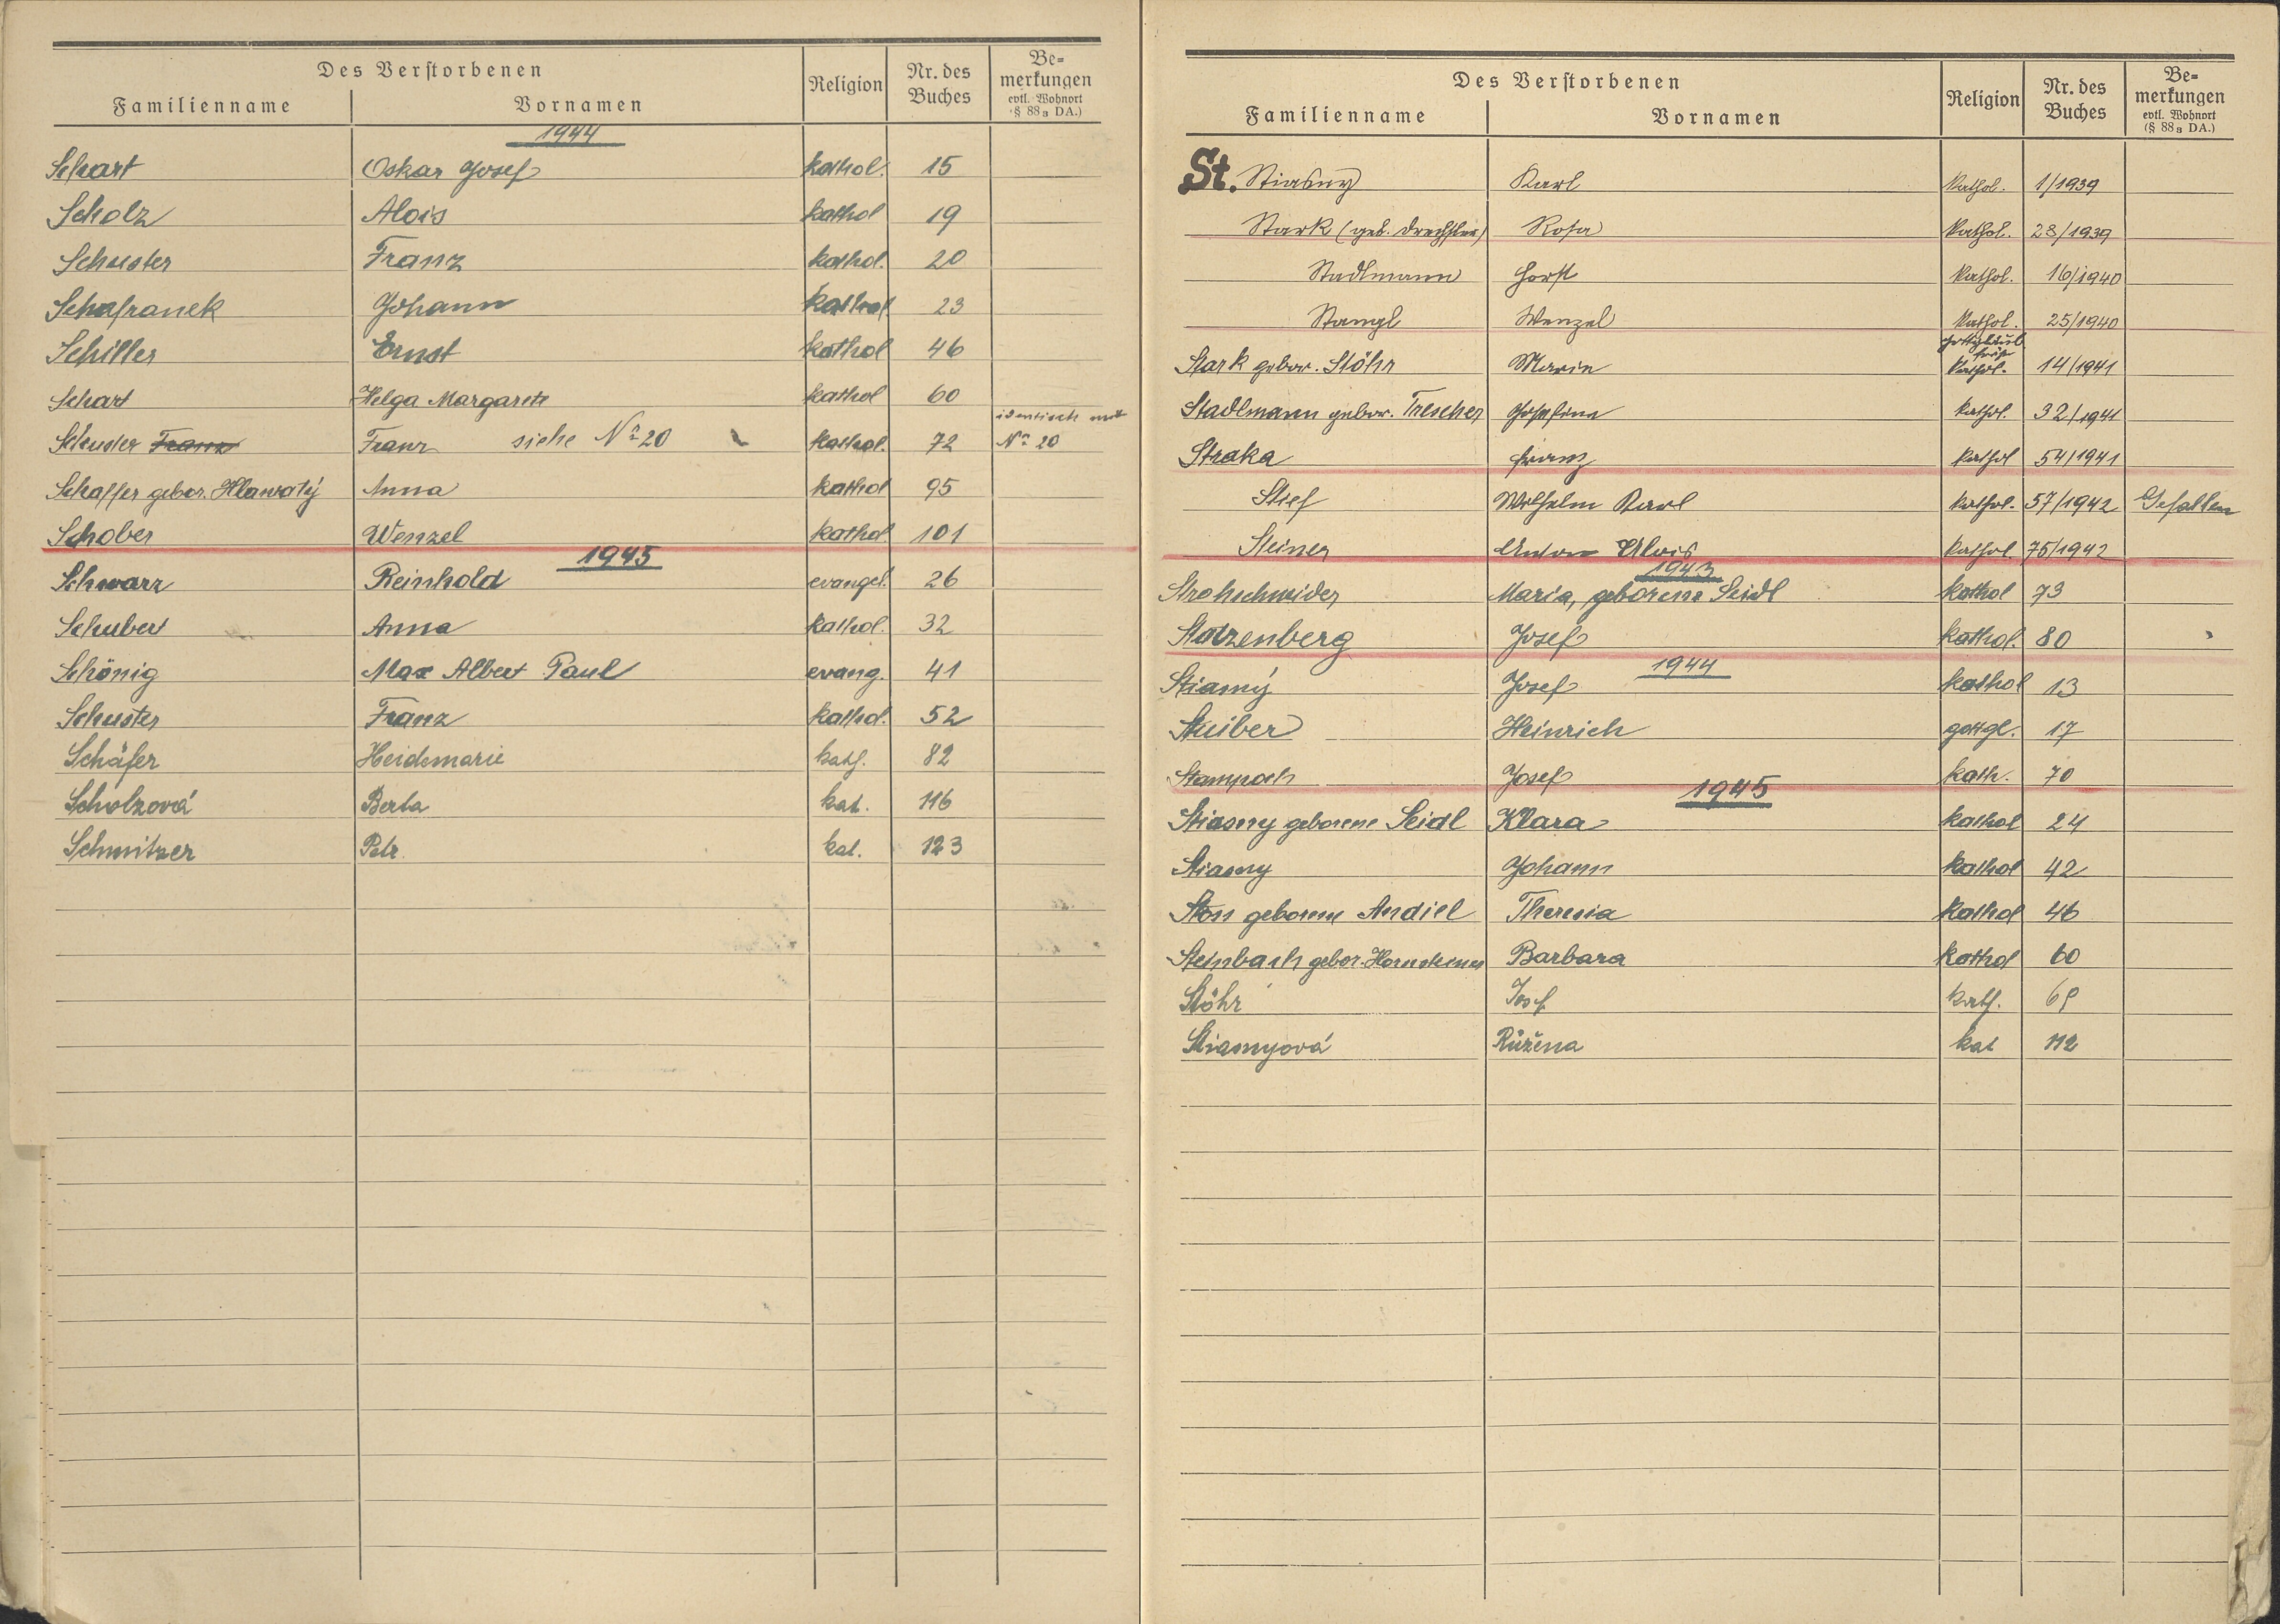 Des Verstorbenen
Familienname Vornamen Religion Nr. des Buches Bemerkungen evtl. Wohnort (§ 88 a DA.)
1944
Schart Oskar Josef kathol. 15
Scholz Alois kathol 19
Schuster Franz kathol. 20
Schafranek Johann kathol 23
Schiller Ernst kathol 46
Schart Helga Margarete kathol 60
Schuster Franz Franz siehe No 20 kathol. 72 identisch mit No 20
Schaffer gebor. Hlawatý Anna kathol 95
Schober Wenzel kathol 101
1945
Schwarz Reinhold evangel. 26
Schubert Anna kathol. 32
Schönig Max Albert Paul evang. 41
Schuster Franz kathol. 52
Schäfer Heidemarie kath. 82
Scholzová Berta kat. 116
Schmitzer Petr kat. 123
Des Verstorbenen
Familienname Vornamen Religion Nr. des Buches Bemerkungen evtl. Wohnort (§ 88 a DA.)
St. Stiasny Karl kathol. 1/1939
Stark (geb. Drechsler) Rosa kathol. 28/1939
Stadlmann Horst kathol. 16/1940
Stangl Wenzel kathol. 25/1940
Stark gebor. Stöhr Maria kathol. 14/1941
Stadlmann gebor. Trescher Josefine kathol. 32/1941
Straka Franz kathol 54/1941
Stief Wilhelm Karl kathol. 57/1942 Gefallen
Steiner Anton Alois kathol. 75/1942
1943
Strohschneider Maria, geborene Seidl kathol 73
Statzenberg Josef kathol. 80
1944
Stiasný Josef kathol 13
Stuiber Heinrich gottgl. 17
Stampach Josef kath. 70
1945
Stiasny geborene Seidl Klara kathol 24
Stiasny Johann kathol 42
Stoss geborene Andiel Theresia kathol 46
Steinbach gebor. Hornsteiner Barbara kathol 60
Stöhr Josef kath. 69
Stiasnyová Růžena kat 112